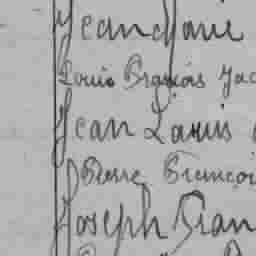 Jean Marie
Louis François Jac
Jean Louis
Pierre Françoi
Joseph Fran